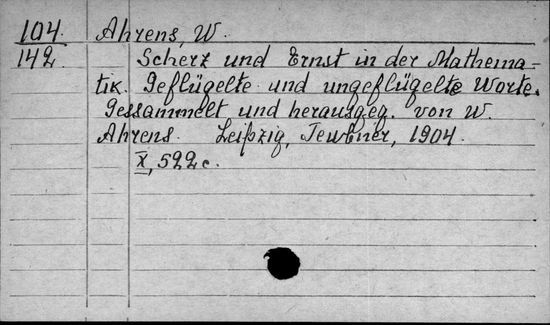 104. Ahrens, W.
142. Scherz und Ernst in der Mathema-
tik. Geflügelte und ungeflügelte Worte.
Gessammelt und herausgeg. von W.
Ahrens. Leipzig, Tewbner, 1904.
X, 522 c.